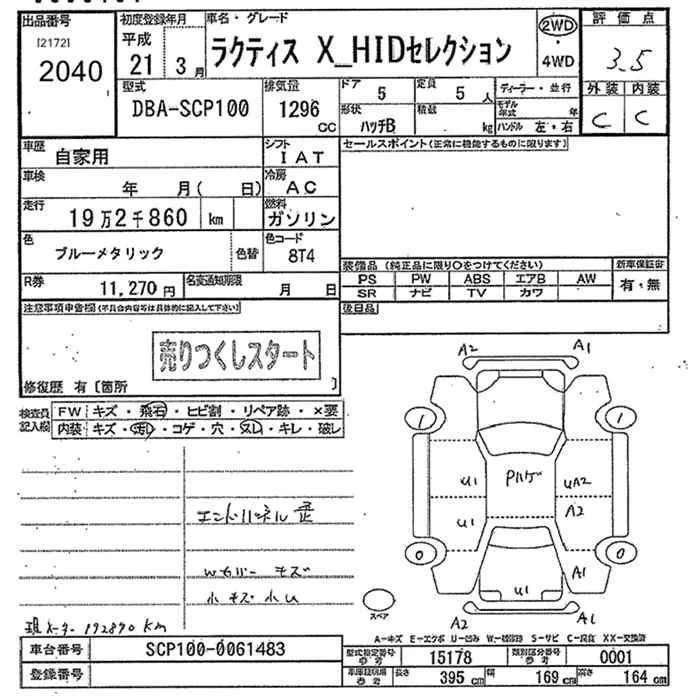 出品番号
[2172]
2040
初度登録年月
平成
21 3月
車名・グレード
ラクティス X_HIDセレクション
2WD
・
4WD
評価点
3.5
外装 内装
C C
型式
DBA-SCP100
排気量
1296
CC
ドア
5
定員
5人
ディーラー・並行
形状
ハッチB
積載
kg
モデル年式 年
ハンドル 左・右
車歴
自家用
シフト
IAT
セールスポイント(正常に機能するものに限ります)
車検
年 月( 日)
冷房
AC
走行
19万2千860 km
燃料
ガソリン
色
ブルーメタリック
色替
色コード
8T4
装備品 (純正品に限り〇をつけてください)
新車保証書
PS PW ABS エアB AW
有・無
SR ナビ TV カワ
R券
11,270円
名変通知期限
月 日
後日品
注意事項申告欄(不具合内容等は具体的に記入して下さい)
売りつくしスタート
修復歴 有[箇所 ]
検査員
記入欄
FW キズ・飛石・ヒビ割・リペア跡・×要
内装 キズ・汚れ・コゲ・穴・スレ・キレ・破レ
A2 A1
1 1
U1 Pルーゲ UA2
U1 A2
0 0
A1
U1
A2 A1
スペア
エンドパネル 歪
Wカバー キズ
小キズ 小U
現メーター 192890 km
A-キズ E-エクボ U-凹み W-補修跡 S-サビ C-腐食 XX-交換済
車台番号 SCP100-0061483
型式指定番号
参考
15178
類別区分番号
参考
0001
登録番号
車庫証明用
参考
長さ 395 cm 幅 169 cm 高 164 cm